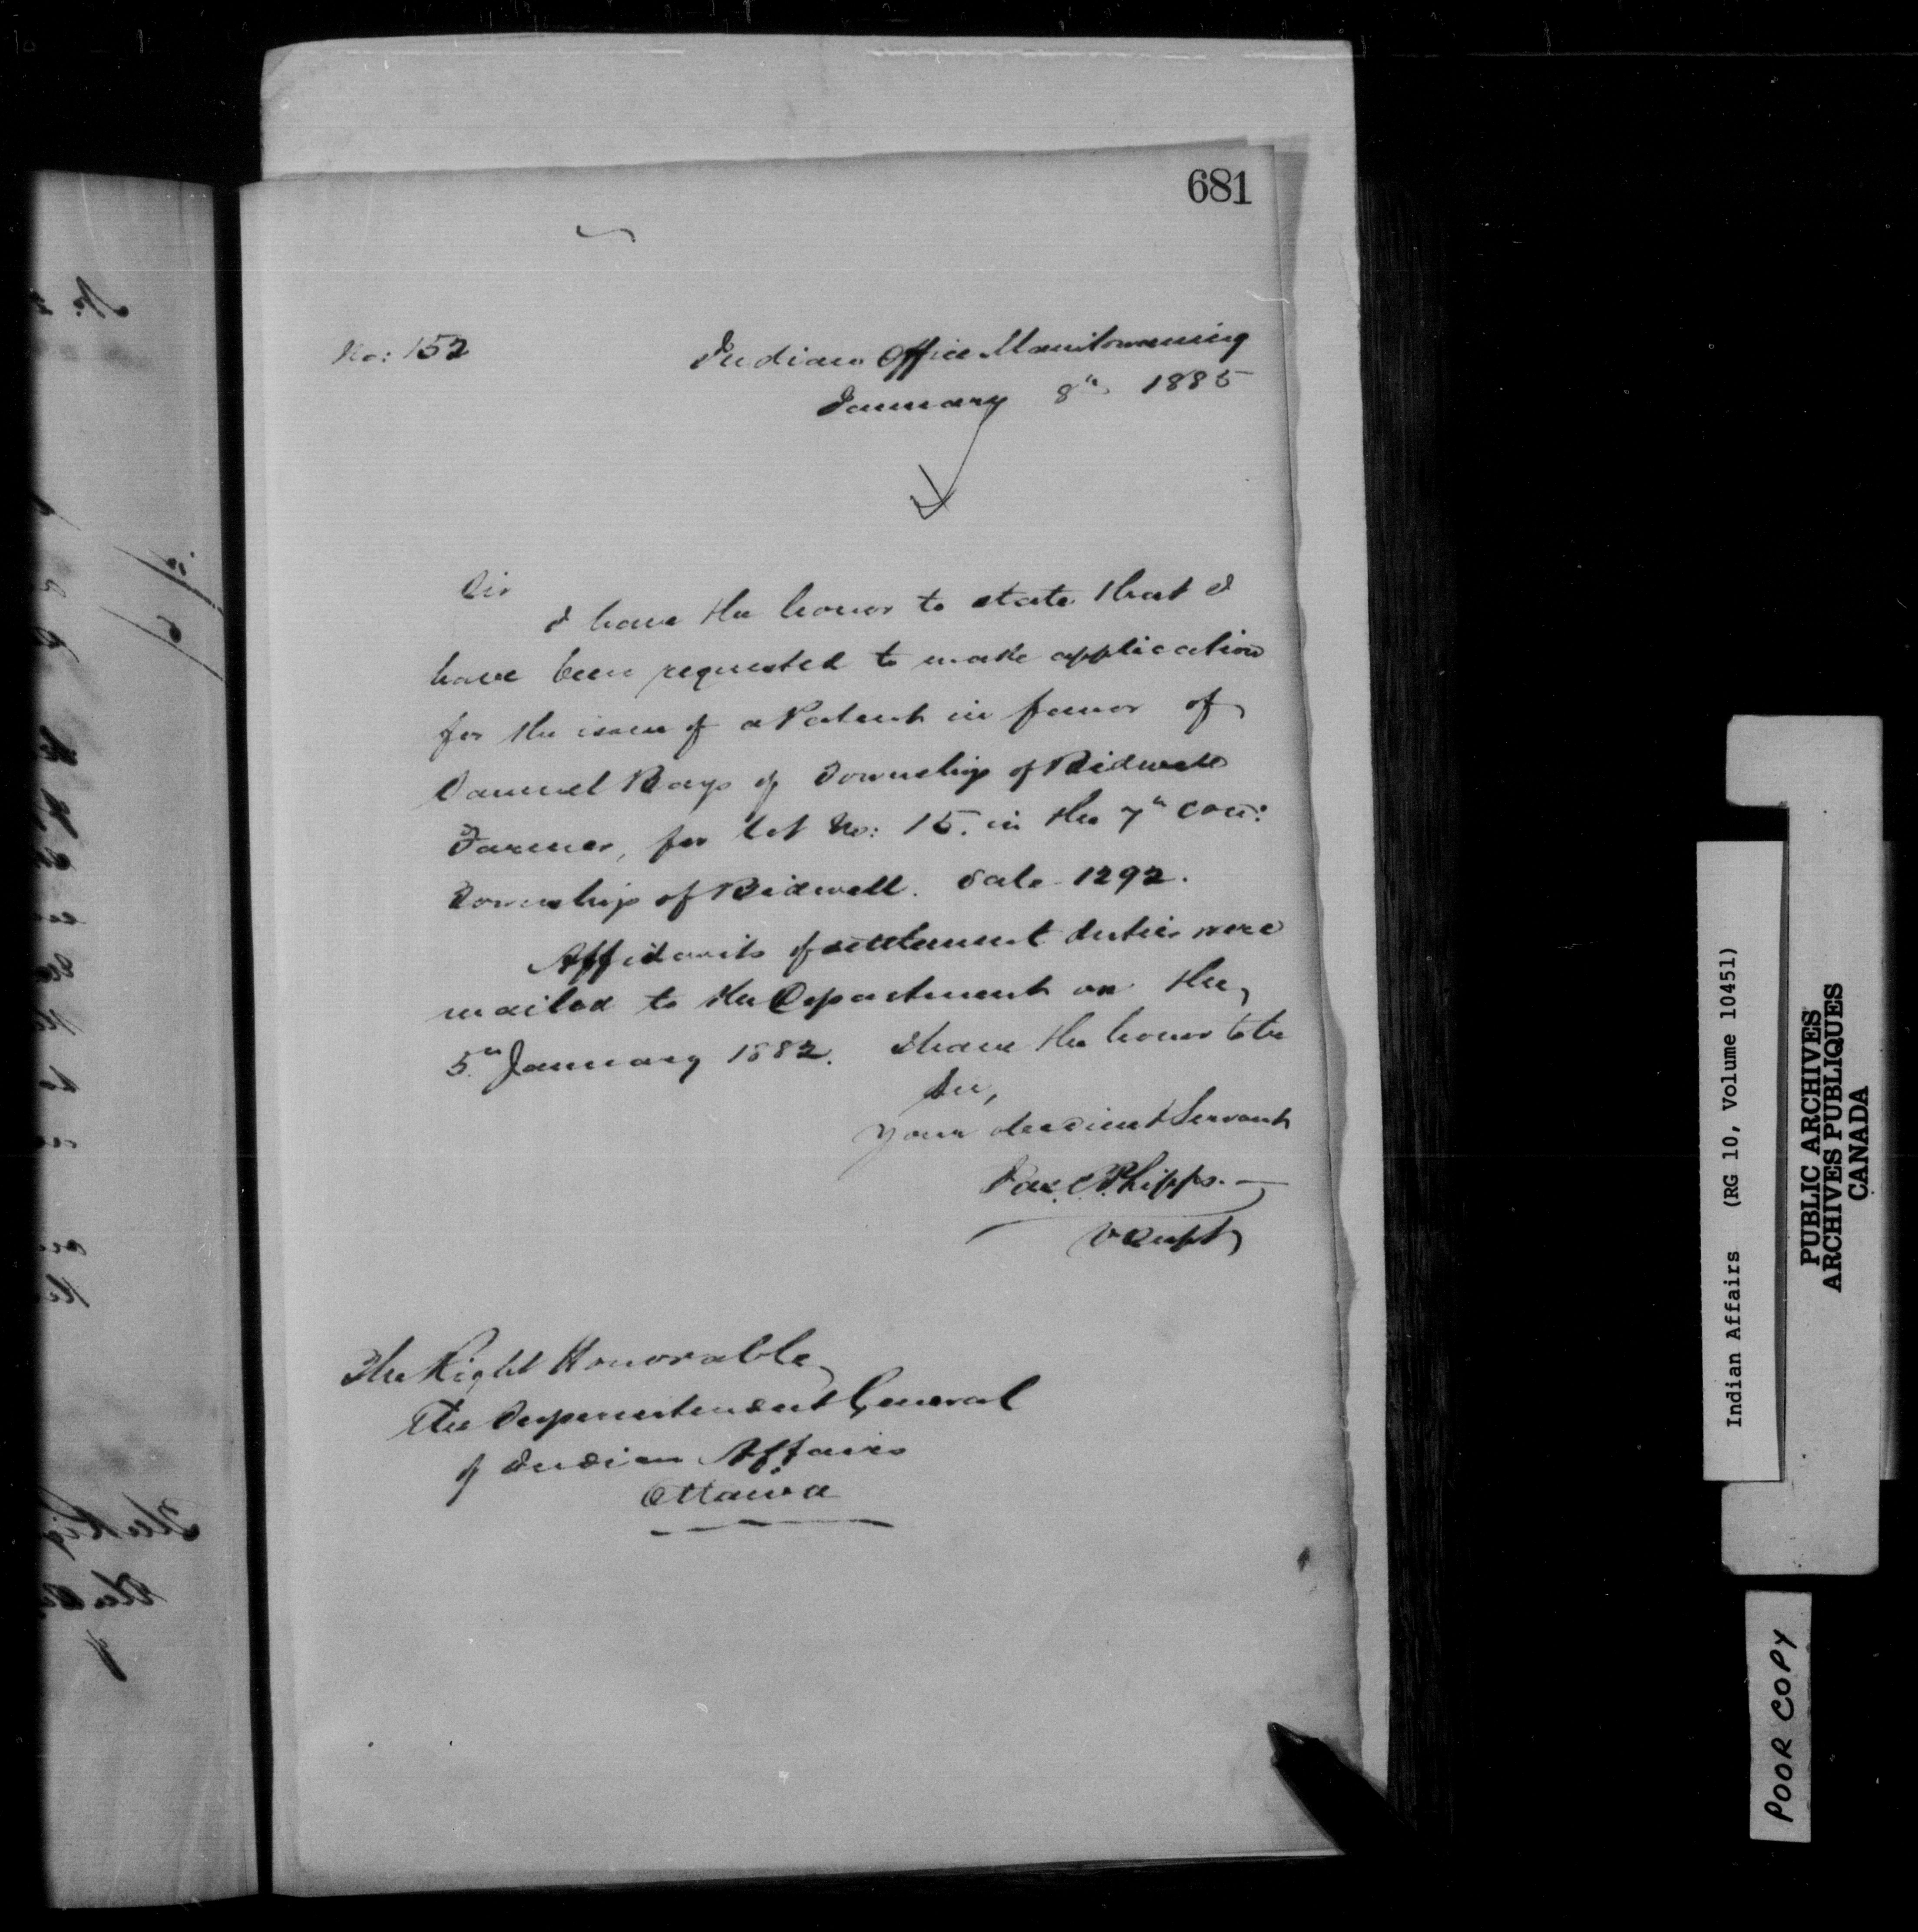 681
No: 152
Indian Office Manitowaning
January 8th 1885
Sir
I have the honor to state that I
have been requested to make application
for the issue of a Patent in favor of
Samuel Bays of Township of Bidwell
Farmer, for lot No: 15. in the 7th con:
Township of Bidwell. Sale 1292.
Affidavits of settlement duties were
mailed to the Department on the
5th January 1882. I have the honor to be
Sir,
Your obedient Servant
Jas. C. Phipps.
V Supt
The Right Honorable
The Superintendent General
of Indian Affairs
Ottawa
Indian Affairs (RG 10, Volume 10451)
PUBLIC ARCHIVES
ARCHIVES PUBLIQUES
CANADA
POOR COPY